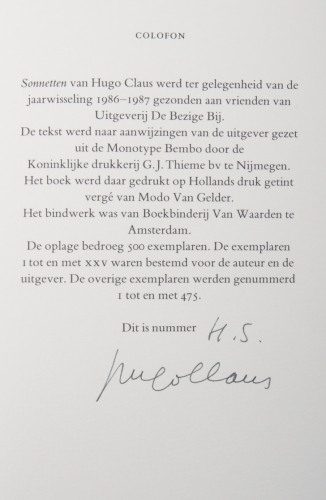 COLOFON
Sonnetten van Hugo Claus werd ter gelegenheid van de
jaarwisseling 1986–1987 gezonden aan vrienden van
Uitgeverij De Bezige Bij.
De tekst werd naar aanwijzingen van de uitgever gezet
uit de Monotype Bembo door de
Koninklijke drukkerij G.J. Thieme bv te Nijmegen.
Het boek werd daar gedrukt op Hollands druk getint
vergé van Modo Van Gelder.
Het bindwerk was van Boekbinderij Van Waarden te
Amsterdam.
De oplage bedroeg 500 exemplaren. De exemplaren
I tot en met XXV waren bestemd voor de auteur en de
uitgever. De overige exemplaren werden genummerd
1 tot en met 475.
Dit is nummer H.S.
Hugo Claus